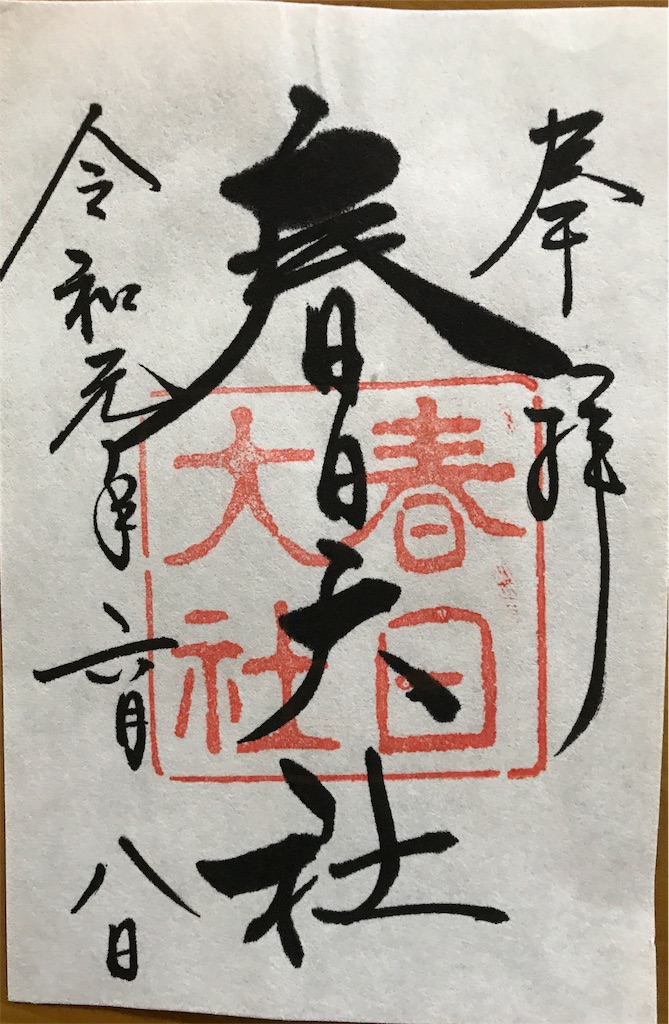 奉拝
春日大社
春日
大社
令和元年六月八日